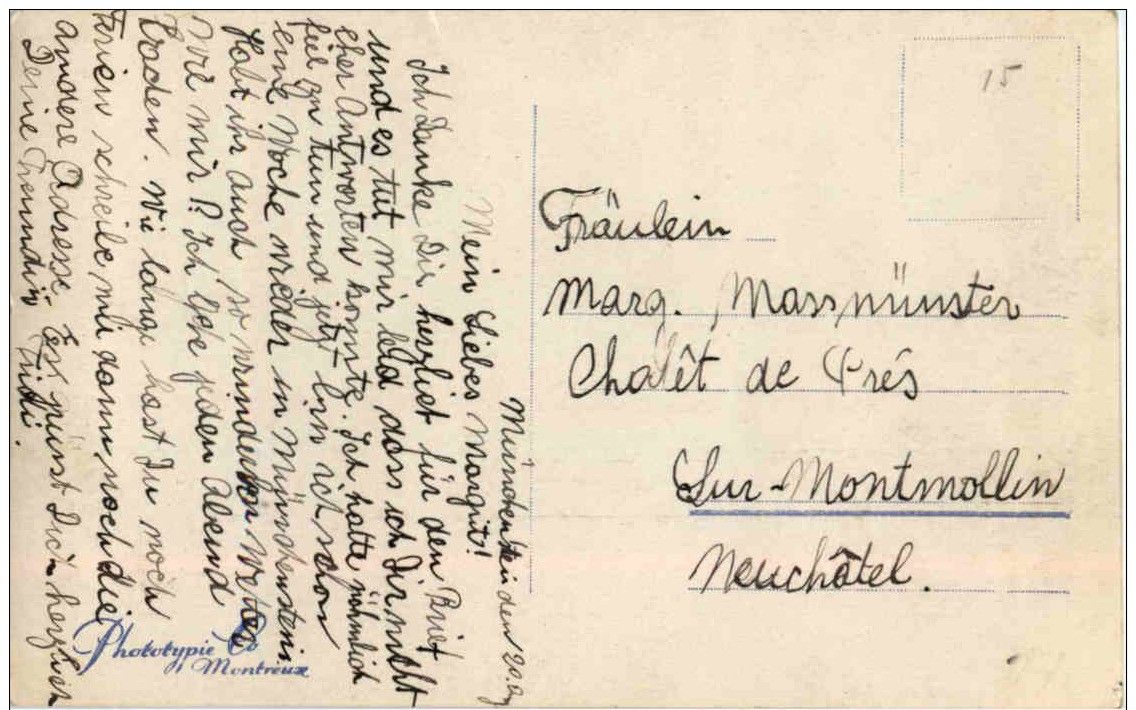 Münchenstein den 20.
Mein Liebes Margrit!
Ich Danke Dir herzlist für den Brief
und es tut mir leid dass ich Dir nicht
eher Antworten konnte. Ich hatte nähmlich
fiel zu tun und jetzt binn ich schon
eine Woche wieder in Münchenstein
Habt ihr auch so Wetter
wie mir? Ich gehe jeden Abend
baden. Wie lange hast Du noch
Ferien schreibe mir dann noch die
andere Adresse. Es grüsst Dich herzlich
Deine Freundin Trudi.
15
Fräulein
Marg. Massmünster
Chalêt de Prés
Sur-Montmollin
Neuchâtel.
Phototypie Co
Montreux